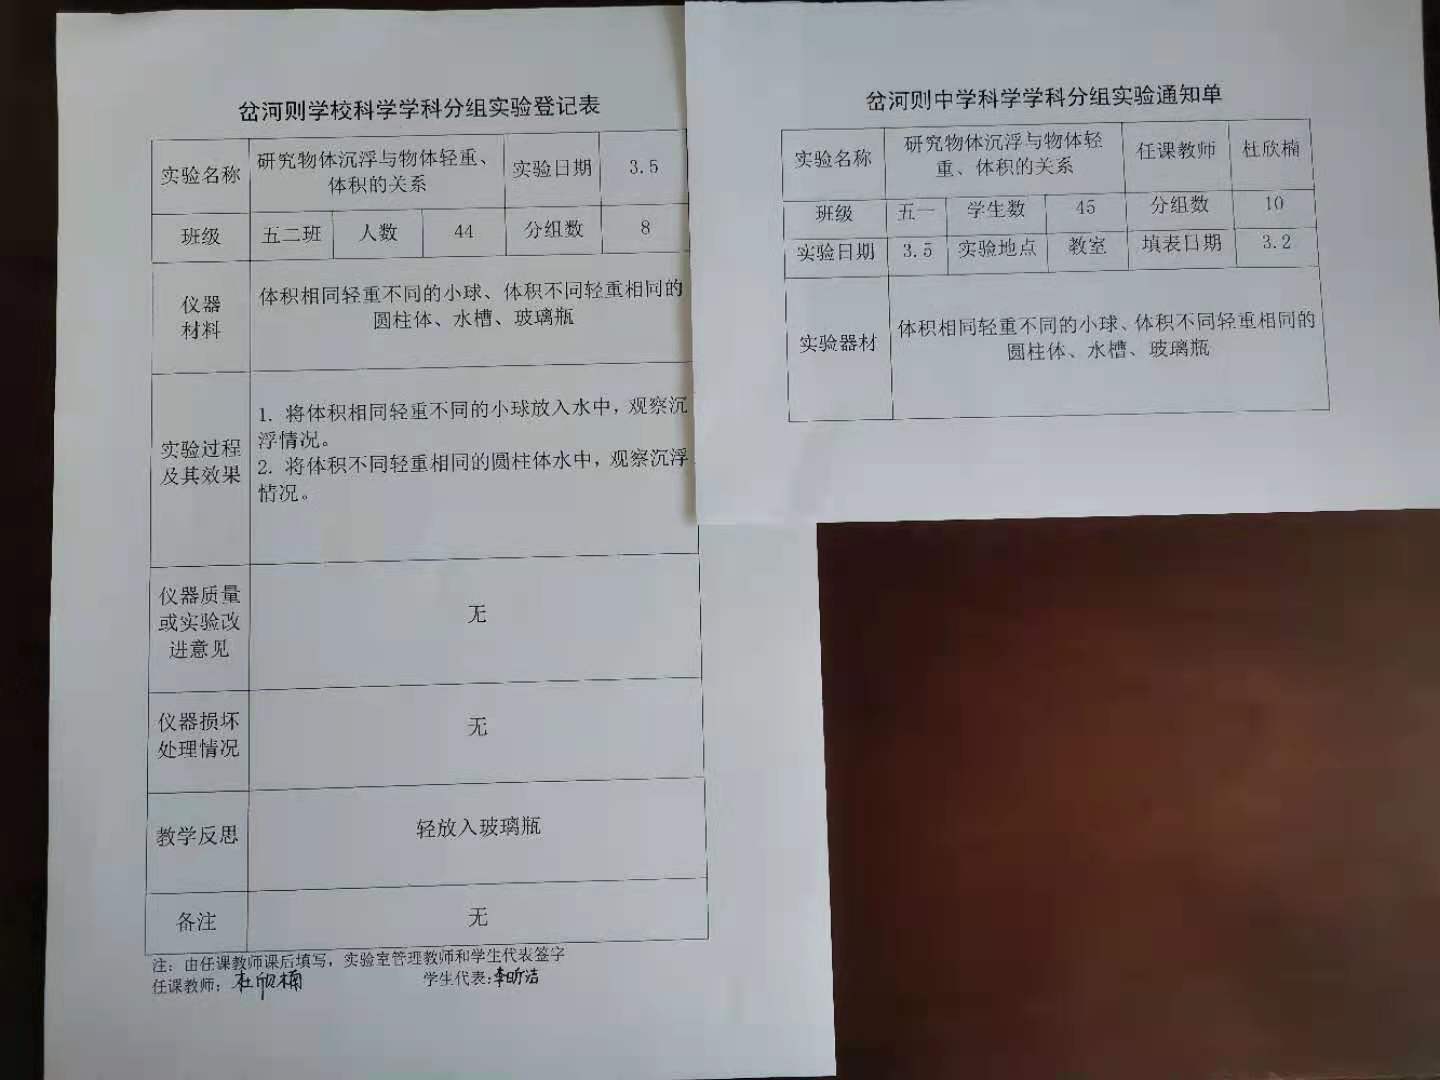 岔河则学校科学学科分组实验登记表
实验名称
研究物体沉浮与物体轻重、
体积的关系
实验日期
3.5
班级
五二班
人数
44
分组数
8
仪器
材料
体积相同轻重不同的小球、体积不同轻重相同的
圆柱体、水槽、玻璃瓶
实验过程
及其效果
1. 将体积相同轻重不同的小球放入水中，观察沉
浮情况。
2. 将体积不同轻重相同的圆柱体水中，观察沉浮
情况。
仪器质量
或实验改
进意见
无
仪器损坏
处理情况
无
教学反思
轻放入玻璃瓶
备注
无
注：由任课教师课后填写，实验室管理教师和学生代表签字
任课教师：杜欣楠 学生代表：李昕洁
岔河则中学科学学科分组实验通知单
实验名称
研究物体沉浮与物体轻
重、体积的关系
任课教师
杜欣楠
班级
五一
学生数
45
分组数
10
实验日期
3.5
实验地点
教室
填表日期
3.2
实验器材
体积相同轻重不同的小球、体积不同轻重相同的
圆柱体、水槽、玻璃瓶